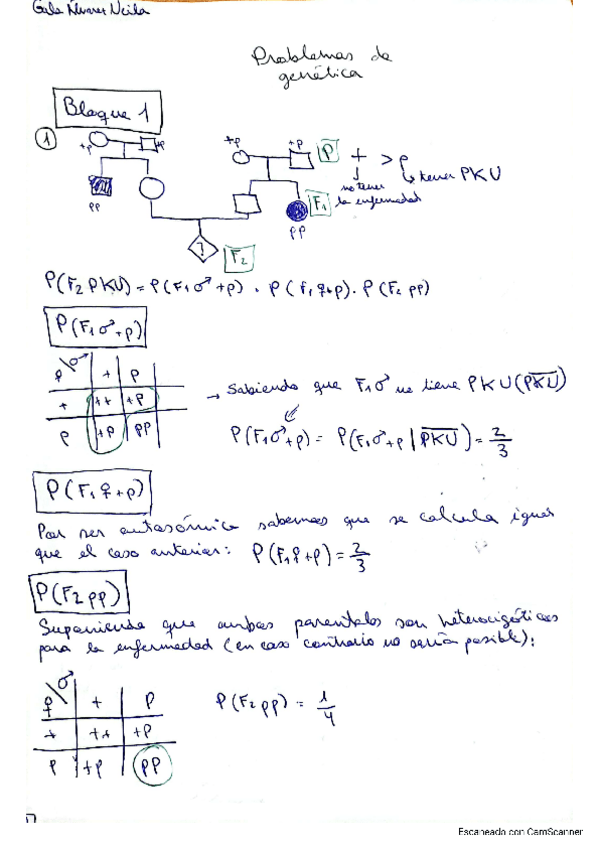 Gala Álvarez Neila
Problemas de
genética
Bloque 1
1
+p +p +p +p P + > p
no tener la enfermedad
tener PKU
pp
F₁
pp
? F₂
P(F₂ PKU) = P(F₁♂+p) · P(F₁♀+p) · P(F₂ pp)
P(F₁♂+p)
♀ \ ♂ + p
+ ++ +p
p +p pp
→ Sabiendo que F₁♂ no tiene PKU (P̅K̅U̅)
P(F₁♂+p) = P(F₁♂+p | P̅K̅U̅) = 2/3
P(F₁♀+p)
Por ser autosómico sabemos que se calcula igual
que el caso anterior: P(F₁♀+p) = 2/3
P(F₂ pp)
Suponiendo que ambos parentales son heterocigóticos
para la enfermedad (en caso contrario no sería posible):
♀ \ ♂ + p
+ ++ +p
p +p pp
P(F₂ pp) = 1/4
Escaneado con CamScanner